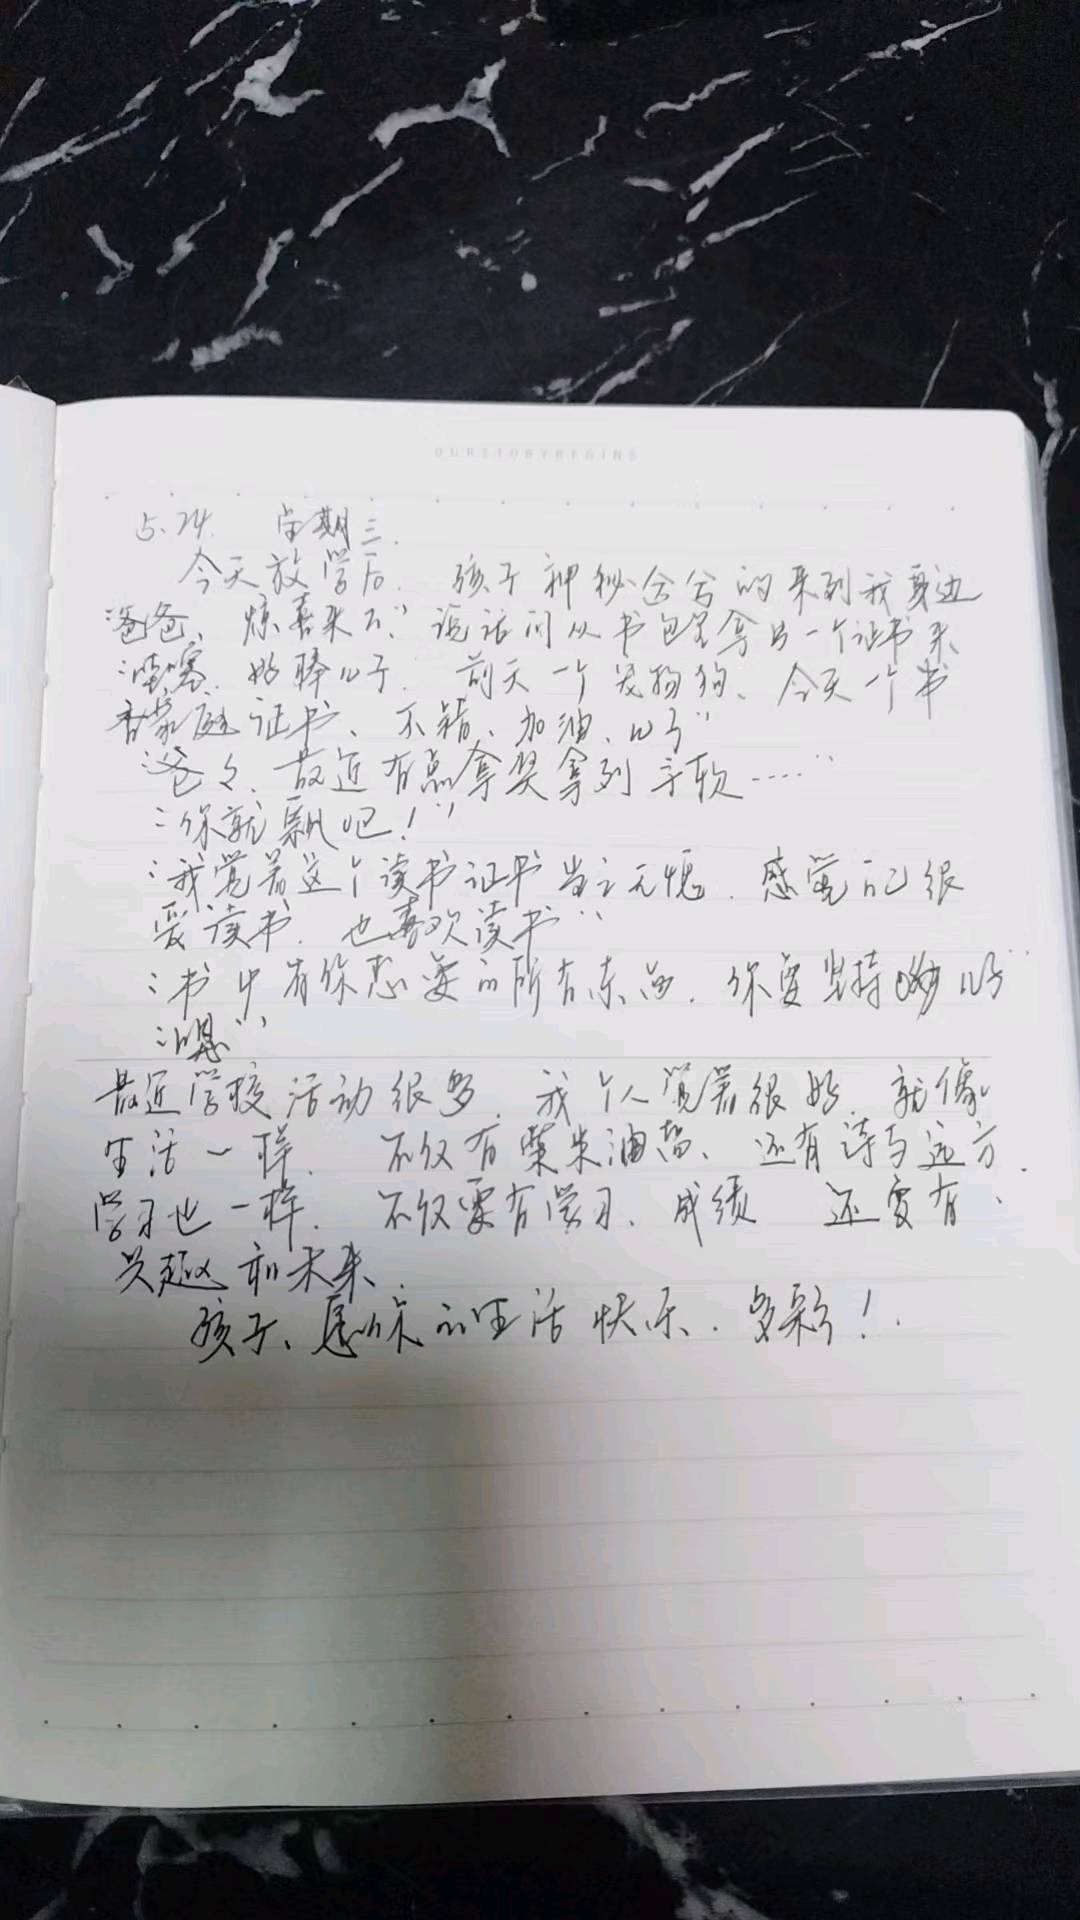 OURSTORYBEGINS
5.24. 星期三.
今天放学后. 孩子神秘兮兮的来到我身边
"爸爸、惊喜来了." 说话间从书包里拿出一个证书来
"哇塞. 好棒儿子. 前天一个宠物狗、今天一个书
香家庭证书、不错、加油、儿子"
"爸々、最近有点拿奖拿到手软……"
"你就飘吧!"
"我觉着这个读书证书当之无愧. 感觉自己很
爱读书. 也喜欢读书"
"书中有你想要的所有东西. 你要坚持呦儿子"
"嗯"
最近学校活动很多. 我个人觉着很好. 就像
生活一样. 不仅有柴米油盐、还有诗与远方.
学习也一样. 不仅要有学习、成绩 还要有、
兴趣和未来、
孩子、愿你的生活快乐. 多彩!.